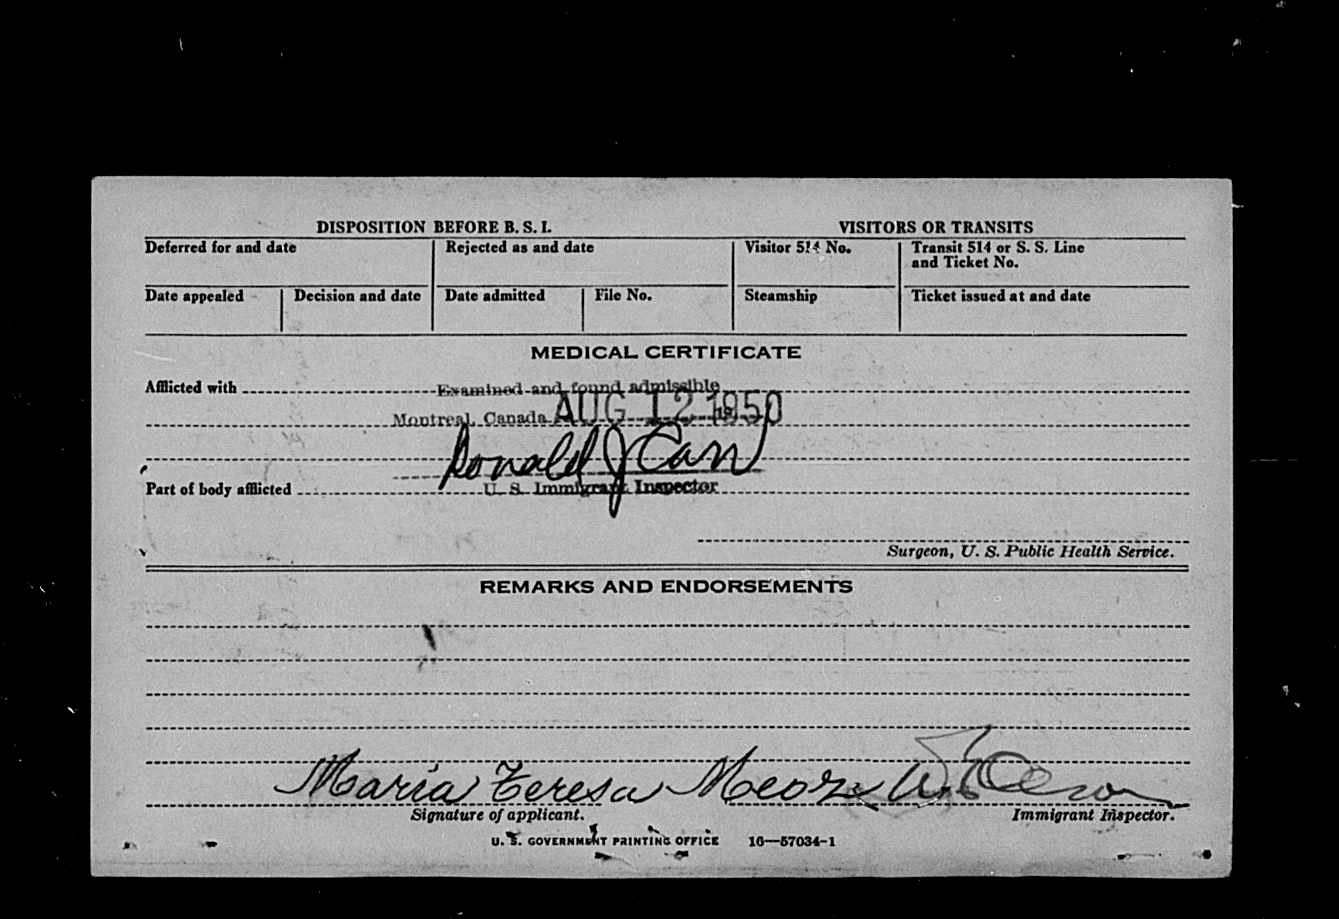 DISPOSITION BEFORE B. S. I. VISITORS OR TRANSITS
Deferred for and date Rejected as and date Visitor 514 No. Transit 514 or S. S. Line
and Ticket No.
Date appealed Decision and date Date admitted File No. Steamship Ticket issued at and date
MEDICAL CERTIFICATE
Afflicted with Examined and found admissible
Montreal, Canada AUG 12 1950
Donald J Carr
Part of body afflicted U. S. Immigrant Inspector
Surgeon, U. S. Public Health Service.
REMARKS AND ENDORSEMENTS
Maria Teresa
Signature of applicant. Immigrant Inspector.
U. S. GOVERNMENT PRINTING OFFICE 16—57034-1